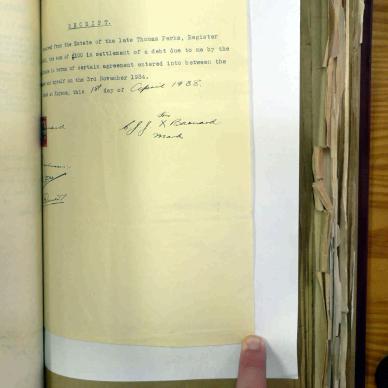 RECEIPT.
from the Estate of the late Thomas Perks, Register
the sum of £100 in settlement of a debt due to me by the
in terms of certain agreement entered into between the
and myself on the 3rd November 1934.
at Knysna, this 1st day of April 1938.
his
C J J X Barnard
mark